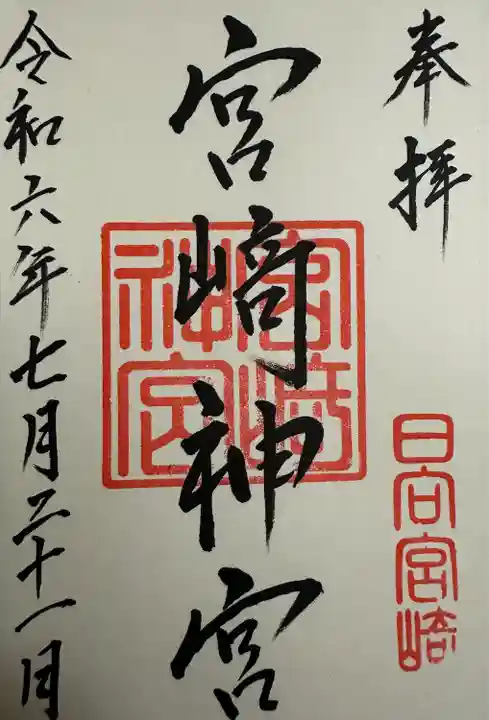 奉拝
日向宮崎
宮﨑神宮
宮崎
神宮
令和六年七月二十一日